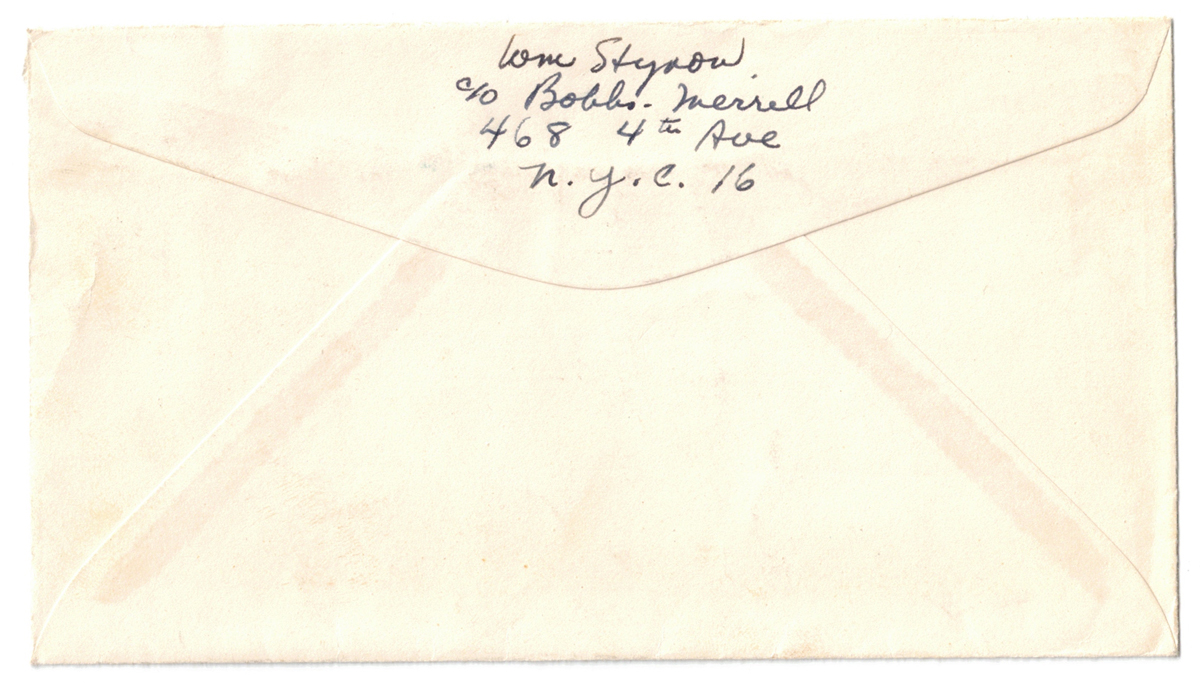 Wm Styron
c/o Bobbs-Merrell
468 4th Ave
N.Y.C. 16